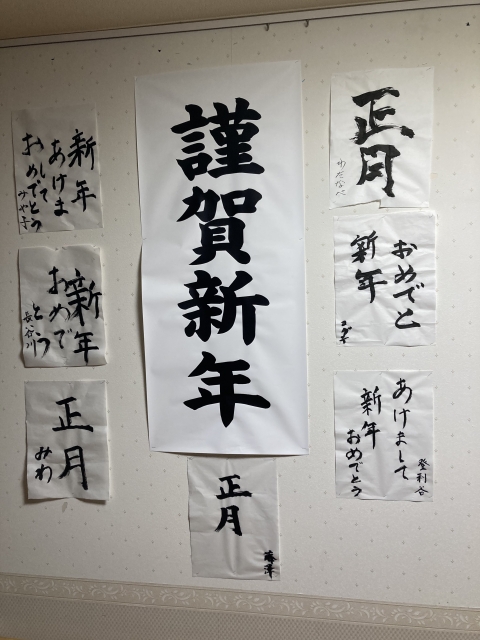 謹賀新年
正月
わたなべ
おめでと
新年
あけまして
新年
おめでとう
登利谷
新年
あけま
して
おめでとう
みや子
新年
おめで
とう
長谷川
正月
みわ
正月
藤澤